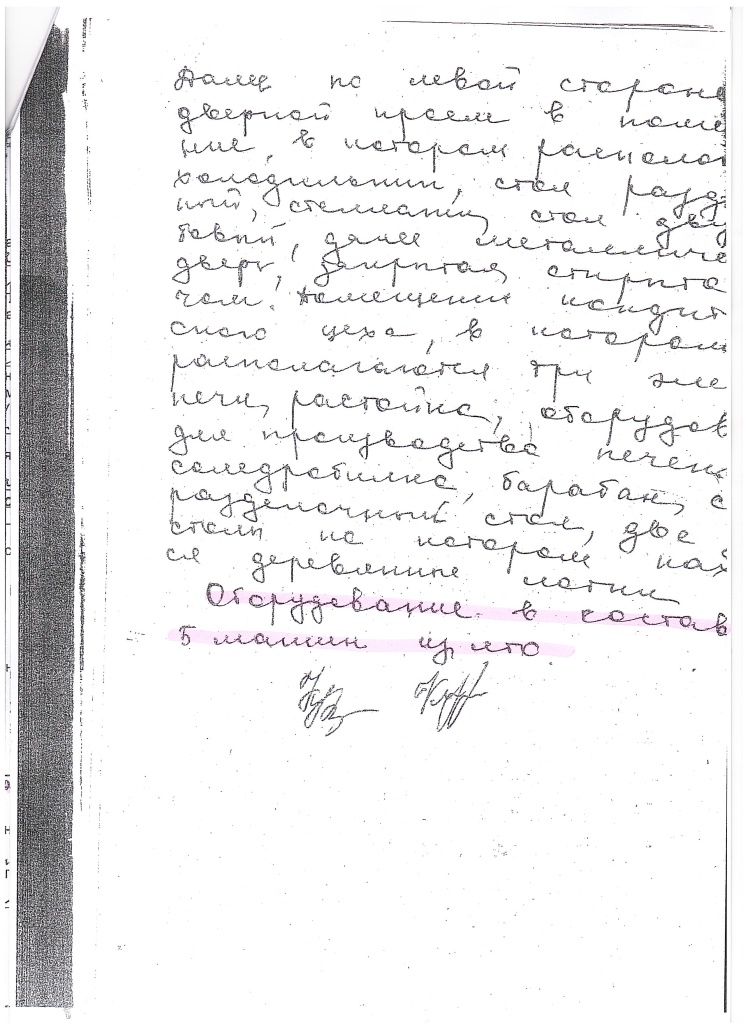 Далее по левой стороне
дверной проем в поме
ние, в котором располо
холодильники, стол разд
ный, стеллажи, стол дву
товый, далее металличе
дверь, закрытая, открыта
чом. Помещение кондит
ского цеха, в котором
располагаются три эле
печи, растойка, оборудов
для производства печень
солодробилка, барабан, с
разделочный стол, две
столы на котором нах
ся деревянные лотки
Оборудевание в состав
5 машин изъято.